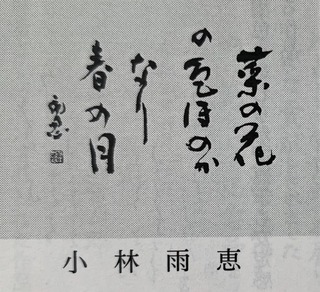 菜の花
の色ほのか
なり
春の月
雨恵
小林雨恵